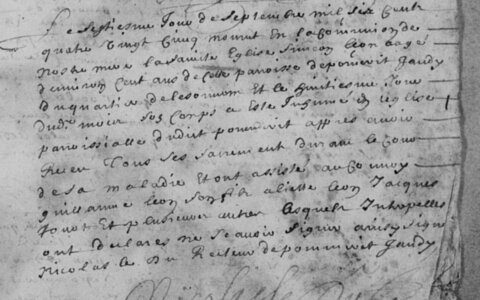 Le septiesme Jour de septembre mil six cent
quatre vingt cinq mourut en la Communion de
nostre mere la saincte Eglise Simeon leon aagé
denviron cent ans de cette paroisse de pomerit Jaudy
du quartier de et le huictiesme Jour
dud. mois son Corps a esté Inhumé en leglise
paroissialle dudit pomerit appres avoir
Receu Tous ses sacrement durant le cour
de sa maladie et ont assisté au Convoy
guillaume leon son fils aliette leon Jacques
et plusieurs autres lesquels Interpelles
ont declarés ne scavoir signer ainsy signé
Nicolas le Recteur de pommerit Jaudy